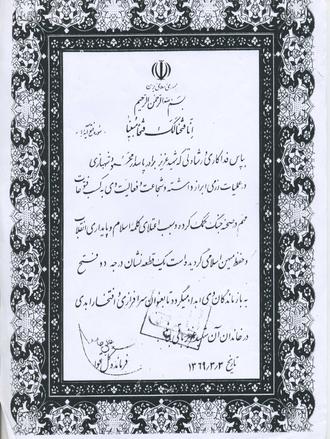 جمهوری اسلامی ایران
بسم الله الرحمن الرحیم
انا فتحنا لک فتحا مبینا
بپاس فداکاری و رشادتی که شهید عزیز برادر پاسدار
در عملیات رزمی ابراز داشته و شجاعت و فعالیت‌های به کسب فتوحات
مهم در صحنه جنگ کمک کرده و سبب اعتلای کلمه اسلام و پایداری انقلاب
و حفظ میهن اسلامی گردیده است یک قطعه نشان درجه دو فتح
به بازماندگان وی اهدا میگردد تا بعنوان سرافرازی و افتخار ابدی
در خاندان آن شهید عزیز باقی
فرمانده کل قوا
تاریخ ۱۳۶۹/۳/۳